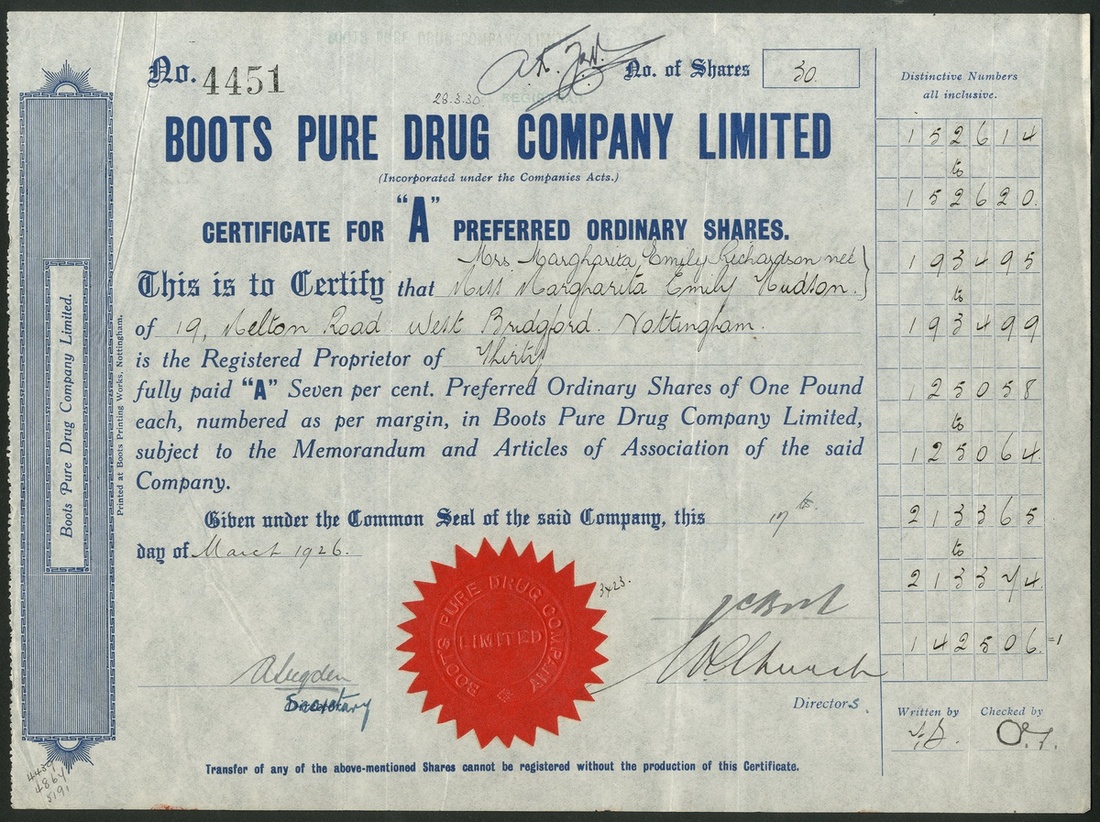 No. 4451
No. of Shares 30.
28.3.30
BOOTS PURE DRUG COMPANY LIMITED
(Incorporated under the Companies Acts.)
CERTIFICATE FOR "A" PREFERRED ORDINARY SHARES.
Mrs. Margharita Emily Richardson neé
This is to Certify that Miss Margharita Emily Hudson.
of 19, Melton Road West Bridgford. Nottingham.
is the Registered Proprietor of Thirty
fully paid "A" Seven per cent. Preferred Ordinary Shares of One Pound
each, numbered as per margin, in Boots Pure Drug Company Limited,
subject to the Memorandum and Articles of Association of the said
Company.
Given under the Common Seal of the said Company, this 17th
day of March 1926.
BOOTS PURE DRUG COMPANY
LIMITED
3423.
Secretary
Directors.
Transfer of any of the above-mentioned Shares cannot be registered without the production of this Certificate.
Distinctive Numbers
all inclusive.
152614
to
152620.
193495
to
193499
125058
to
125064.
213365
to
213374
142506.=1
Written by Checked by
Boots Pure Drug Company Limited.
Printed at Boots Printing Works, Nottingham.
4864
5191